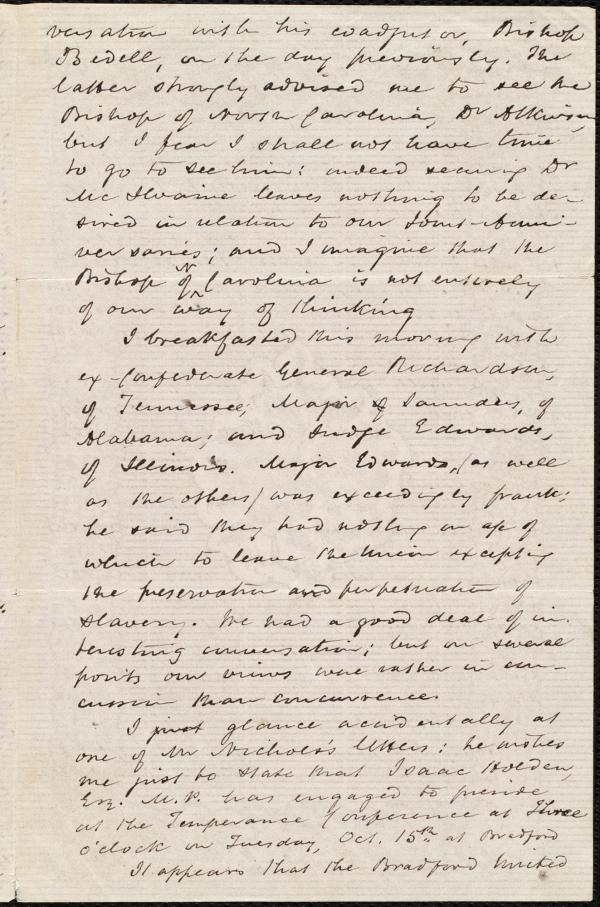 versation with his coadjutor, Bishop
Bedell, on the day previously. The
latter strongly advised me to see the
Bishop of North Carolina, Dr Atkinson
but I fear I shall not have time
to go to see him: indeed securing Dr
Mc Ilvaine leaves nothing to be de-
sired in relation to our Joint-Anni-
versaries; and I imagine that the
Bishop of N Carolina is not entirely
of our way of thinking
I breakfasted this morning with
ex-Confederate General Richardson,
of Tennessee; Major Saunders, of
Alabama; and Judge Edwards,
of Illinois. Major Edwards, (as well
as the others) was exceedingly frank:
he said they had nothing on
which to leave the Union excepting
the preservation and perpetuation of
slavery. We had a good deal of in-
teresting conversation; but on several
points our views were rather in con-
cussion than concurrence.
I just glance accidentally at
one of Mr Nichols's letters: he wishes
me just to state that Isaac Holden,
Esq. M.P. has engaged to preside
at the Temperance Conference at Three
o'clock on Tuesday, Oct. 15th at Bradford
It appears that the Bradford United